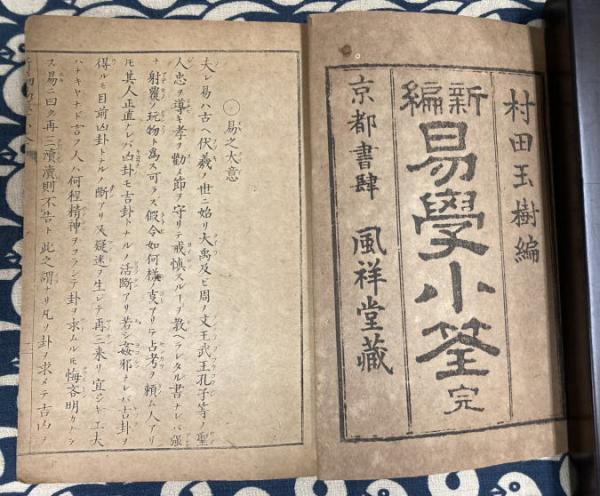 村田玉樹編
新編
易學小筌 完
京都書肆 風祥堂藏
易之大意
夫レ易ハ古ヘ伏羲ノ世ニ始リ大禹及ビ周ノ文王武王孔子等ノ聖
人忠ヲ導キ孝ヲ勸メ節ヲ守リテ戒愼スルヿヲ教ヘラレタル書ナレバ強
チ射覆ノ玩物ト為ス可ラス假令如何様ノ支アリテ占考ヲ頼ム人アリ
モ其人正直ナレバ凶卦モ吉卦トナルノ活斷アリ若シ姦邪ナレバ吉卦ヲ
得ルモ目前凶卦トナルノ斷アリ又疑迷ヲ生シテ再三來リ宜シキ工夫
ハナキヤナド言フ人ハ何程精神ヲコラシテ卦ヲ求ムルモ悔吝明カナラ
ス易ニ曰ク再三瀆瀆則不告ト此之謂ナリ凡ソ卦ヲ求メテ吉凶ヲ